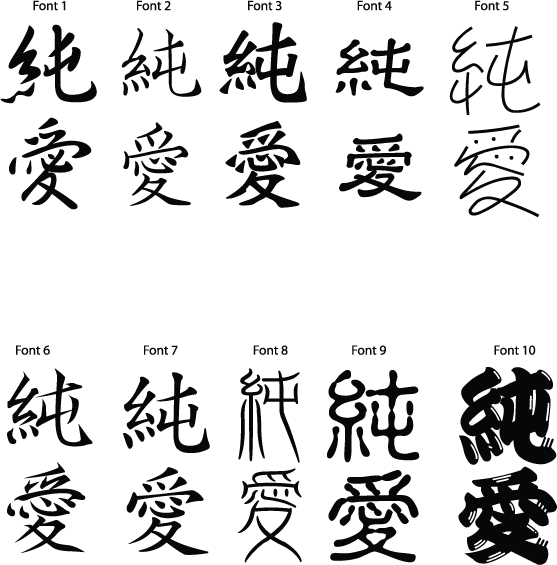 Font 1 Font 2 Font 3 Font 4 Font 5
純 純 純 純 純
愛 愛 愛 愛 愛
Font 6 Font 7 Font 8 Font 9 Font 10
純 純 純 純 純
愛 愛 愛 愛 愛